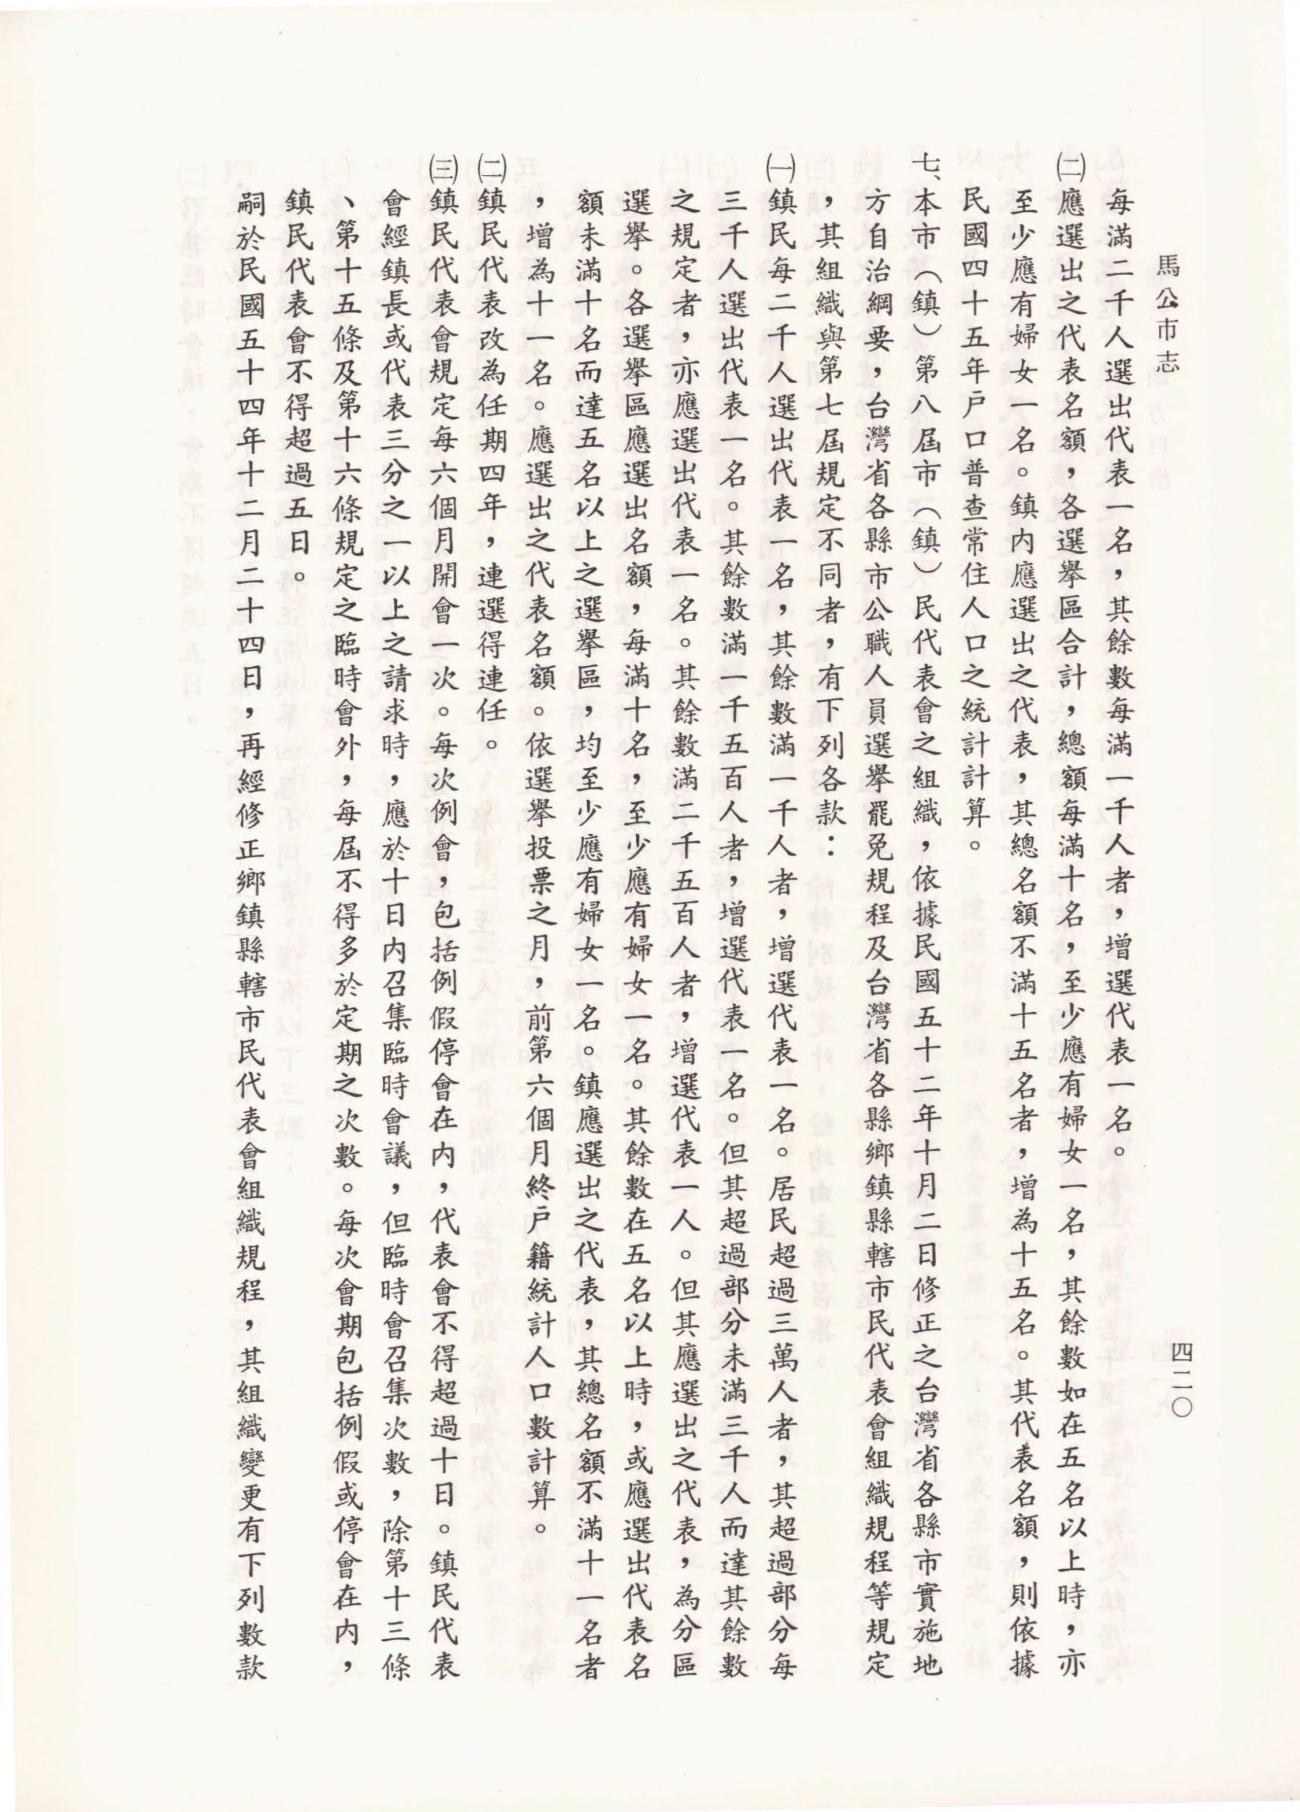 馬公市志
四二〇
每滿二千人選出代表一名，其餘數每滿一千人者，增選代表一名。
㈡應選出之代表名額，各選舉區合計，總額每滿十名，至少應有婦女一名，其餘數如在五名以上時，亦
至少應有婦女一名。鎮內應選出之代表，其總名額不滿十五名者，增為十五名。其代表名額，則依據
民國四十五年戶口普查常住人口之統計計算。
七、本市（鎮）第八屆市（鎮）民代表會之組織，依據民國五十二年十月二日修正之台灣省各縣市實施地
方自治綱要，台灣省各縣市公職人員選舉罷免規程及台灣省各縣鄉鎮縣轄市民代表會組織規程等規定
，其組織與第七屆規定不同者，有下列各款：
㈠鎮民每二千人選出代表一名，其餘數滿一千人者，增選代表一名。居民超過三萬人者，其超過部分每
三千人選出代表一名。其餘數滿一千五百人者，增選代表一名。但其超過部分未滿三千人而達其餘數
之規定者，亦應選出代表一名。其餘數滿二千五百人者，增選代表一人。但其應選出之代表，為分區
選舉。各選舉區應選出名額，每滿十名，至少應有婦女一名。其餘數在五名以上時，或應選出代表名
額未滿十名而達五名以上之選舉區，均至少應有婦女一名。鎮應選出之代表，其總名額不滿十一名者
，增為十一名。應選出之代表名額。依選舉投票之月，前第六個月終戶籍統計人口數計算。
㈡鎮民代表改為任期四年，連選得連任。
㈢鎮民代表會規定每六個月開會一次。每次例會，包括例假停會在內，代表會不得超過十日。鎮民代表
會經鎮長或代表三分之一以上之請求時，應於十日內召集臨時會議，但臨時會召集次數，除第十三條
、第十五條及第十六條規定之臨時會外，每屆不得多於定期之次數。每次會期包括例假或停會在內，
鎮民代表會不得超過五日。
嗣於民國五十四年十二月二十四日，再經修正鄉鎮縣轄市民代表會組織規程，其組織變更有下列數款